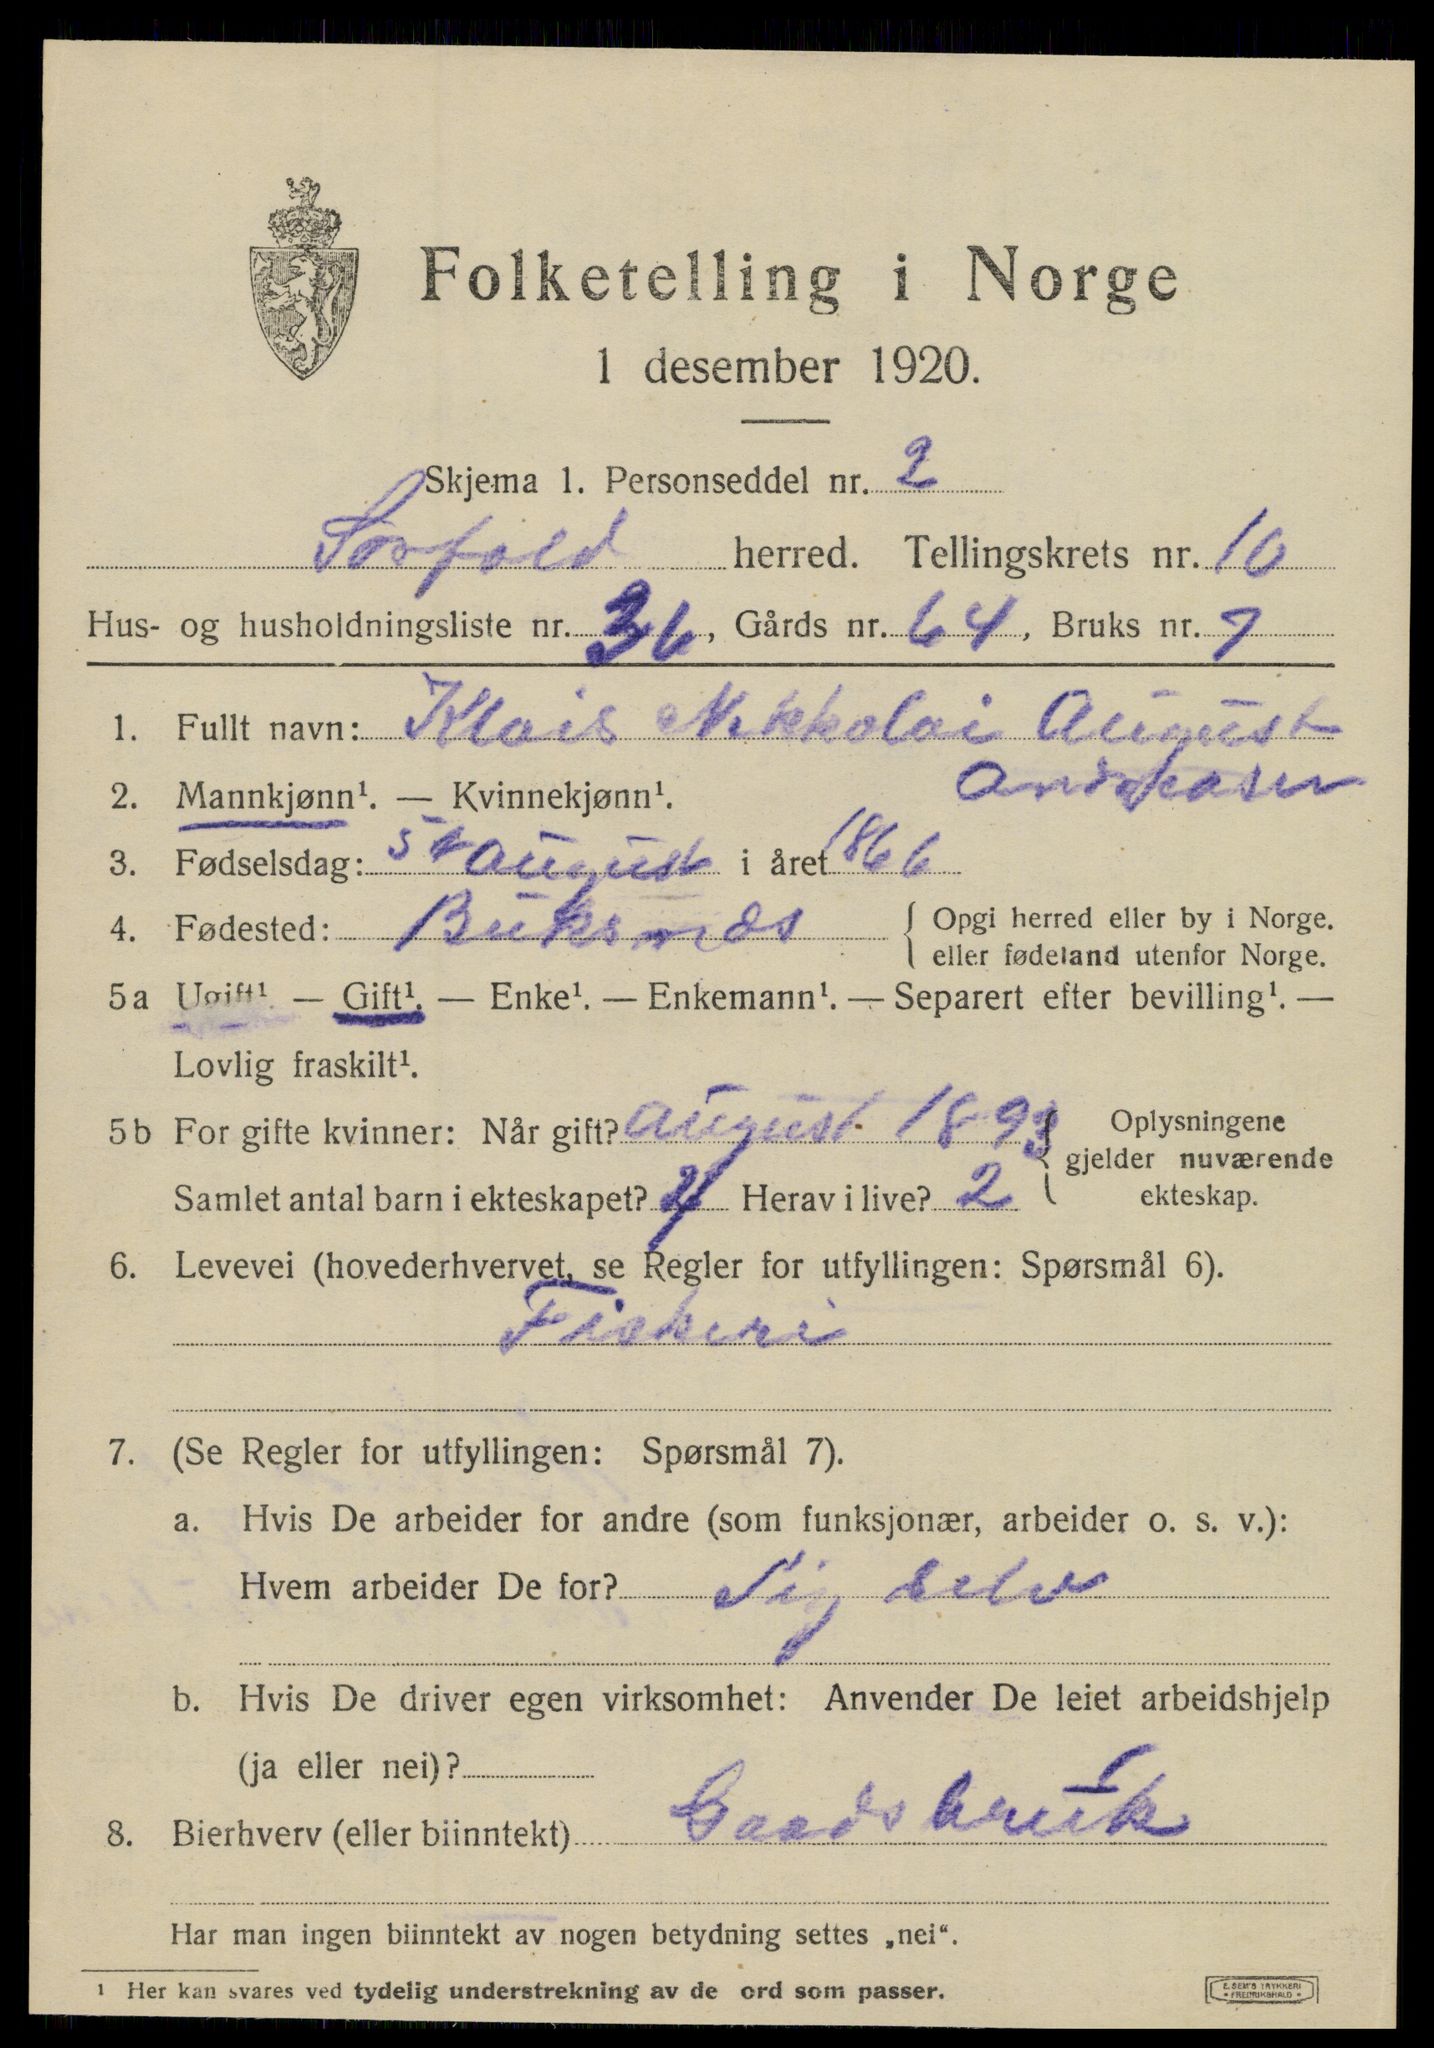 Folketelling i Norge
1 desember 1920.
Skjema 1. Personseddel nr. 2
Sørfold herred. Tellingskrets nr. 10
Hus- og husholdningsliste nr. 36, Gårds nr. 64, Bruks nr. 7
1. Fullt navn: Klais Nikkolai August
Andreasen
2. Mannkjønn¹. — Kvinnekjønn¹.
3. Fødselsdag: 5te August i året 1866
4. Fødested: Buksnæs { Opgi herred eller by i Norge.
eller fødeland utenfor Norge.
5a Ugift¹. — Gift¹. — Enke¹. — Enkemann¹. — Separert efter bevilling¹. —
Lovlig fraskilt¹.
5b For gifte kvinner: Når gift? August 1893 { Oplysningene
gjelder nuværende
Samlet antal barn i ekteskapet? 4 Herav i live? 2 ekteskap.
6. Levevei (hovederhvervet, se Regler for utfyllingen: Spørsmål 6).
Fiskeri
7. (Se Regler for utfyllingen: Spørsmål 7).
a. Hvis De arbeider for andre (som funksjonær, arbeider o. s. v.):
Hvem arbeider De for? Sig selv
b. Hvis De driver egen virksomhet: Anvender De leiet arbeidshjelp
(ja eller nei)?
8. Bierhverv (eller biinntekt) Gaardsbruk
Har man ingen biinntekt av nogen betydning settes „nei“.
¹ Her kan svares ved tydelig understrekning av de ord som passer.
E. SEM'S TRYKKERI
• FREDRIKSHALD •